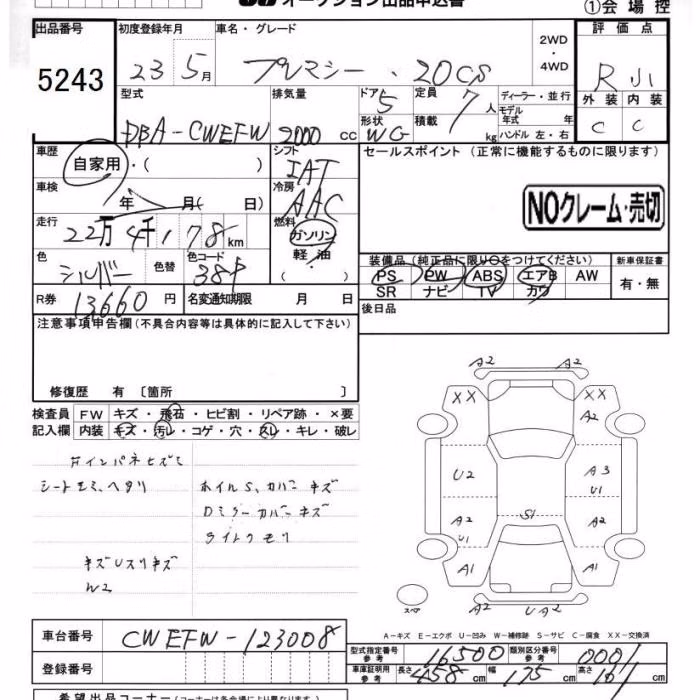 オークション出品申込書 ①会場控
出品番号 初度登録年月 車名・グレード 2WD ・ 4WD 評価点
5243 23 5月 プレマシー ・ 20CS R 小
型式 排気量 ドア 定員 ディーラー・並行 外装 内装
DBA-CWEFW 2000 cc 5 7人 モデル年式 年式 C C
形状 WG 積載 kg ハンドル 左・右
車歴 自家用・( ) シフト IAT セールスポイント (正常に機能するものに限ります)
車検 年 月( 日) 冷房 AAC NOクレーム・売切
走行 22万4千178km 燃料 ガソリン
色 シルバー 色替 色コード 38P 軽油 ( ・ )
装備品 (純正品に限り○をつけてください) 新車保証書
PS PW ABS エアB AW 有・無
SR ナビ TV カワ
R券 13660円 名変通知期限 月 日 後日品
注意事項申告欄 (不具合内容等は具体的に記入して下さい)
修復歴 有 〔箇所 〕
検査員 FW キズ・飛石・ヒビ割・リペア跡・×要
記入欄 内装 キズ・汚レ・コゲ・穴・スレ・キレ・破レ
インパネヒズミ
シートヨゴレ、ヘタリ ホイルS、カバーキズ
Dミラーカバーキズ
ライトクモリ
キズUスリキズ
W2
A2 A2
XX XX
A2
U2 A3
U1
A2 S1 A2
U1
A1 A1
スペア A2 UA2
A-キズ E-エクボ U-凹み W-補修跡 S-サビ C-腐食 XX-交換済
車台番号 CWEFW-123008
型式指定番号 参考 16500 類別区分番号 参考 0001
登録番号 車庫証明用 参考 長さ 458cm 幅 175cm 高さ 161cm
希望出品コーナー (コーナーは各会場により異なります)